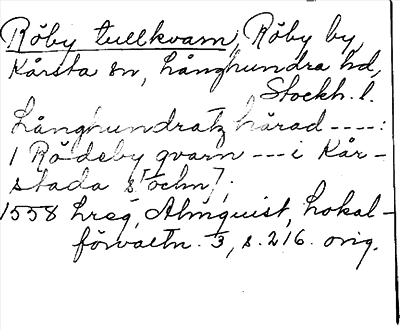 Röby tullkvarn, Röby by,
Kårsta sn, Långhundra hd,
Stockh. l.
Långhundratz härad ----:
1 Rödeby qvarn --- i Kår-
stada s[ochn].
1558 hreg, Almquist, Lokal-
förvaltn. 3, s. 216. orig.